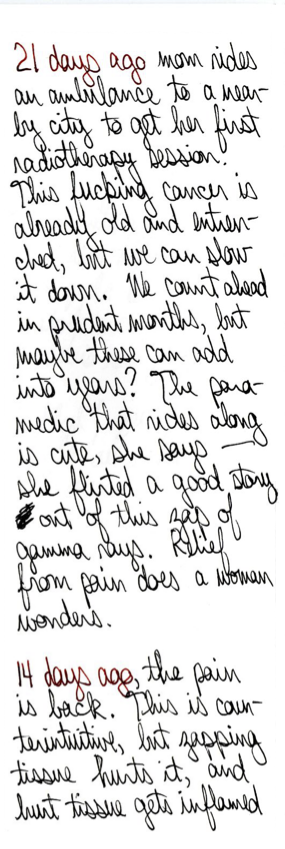 21 days ago mom rides
an ambulance to a near-
by city to get her first
radiotherapy session.
This fucking cancer is
already old and entren-
ched, but we can slow
it down. We count ahead
in prudent months, but
maybe these can add
into years? The para-
medic that rides along
is cute, she says —
she flirted a good story
out of this zap of
gamma rays. Relief
from pain does a woman
wonders.
14 days ago, the pain
is back. This is coun-
terintuitive, but zapping
tissue hurts it, and
hurt tissue gets inflamed